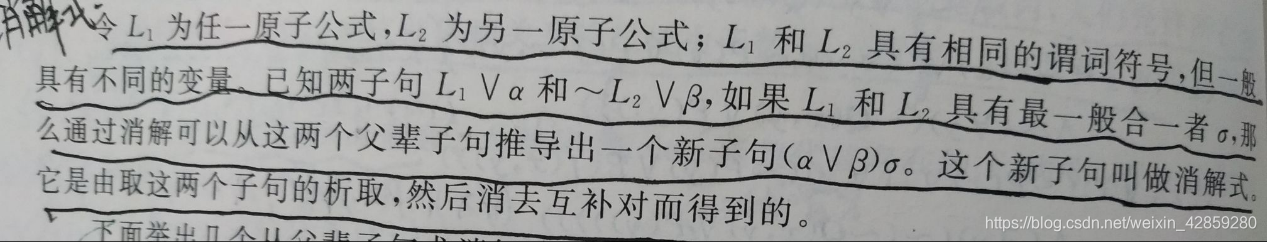 消解式:
令 L₁ 为任一原子公式,L₂ 为另一原子公式；L₁ 和 L₂ 具有相同的谓词符号,但一般
具有不同的变量。已知两子句 L₁∨α 和～L₂∨β,如果 L₁ 和 L₂ 具有最一般合一者 σ,那
么通过消解可以从这两个父辈子句推导出一个新子句(α∨β)σ。这个新子句叫做消解式。
它是由取这两个子句的析取,然后消去互补对而得到的。
下面举出几个从父辈子句求消
https://blog.csdn.net/weixin_42859280